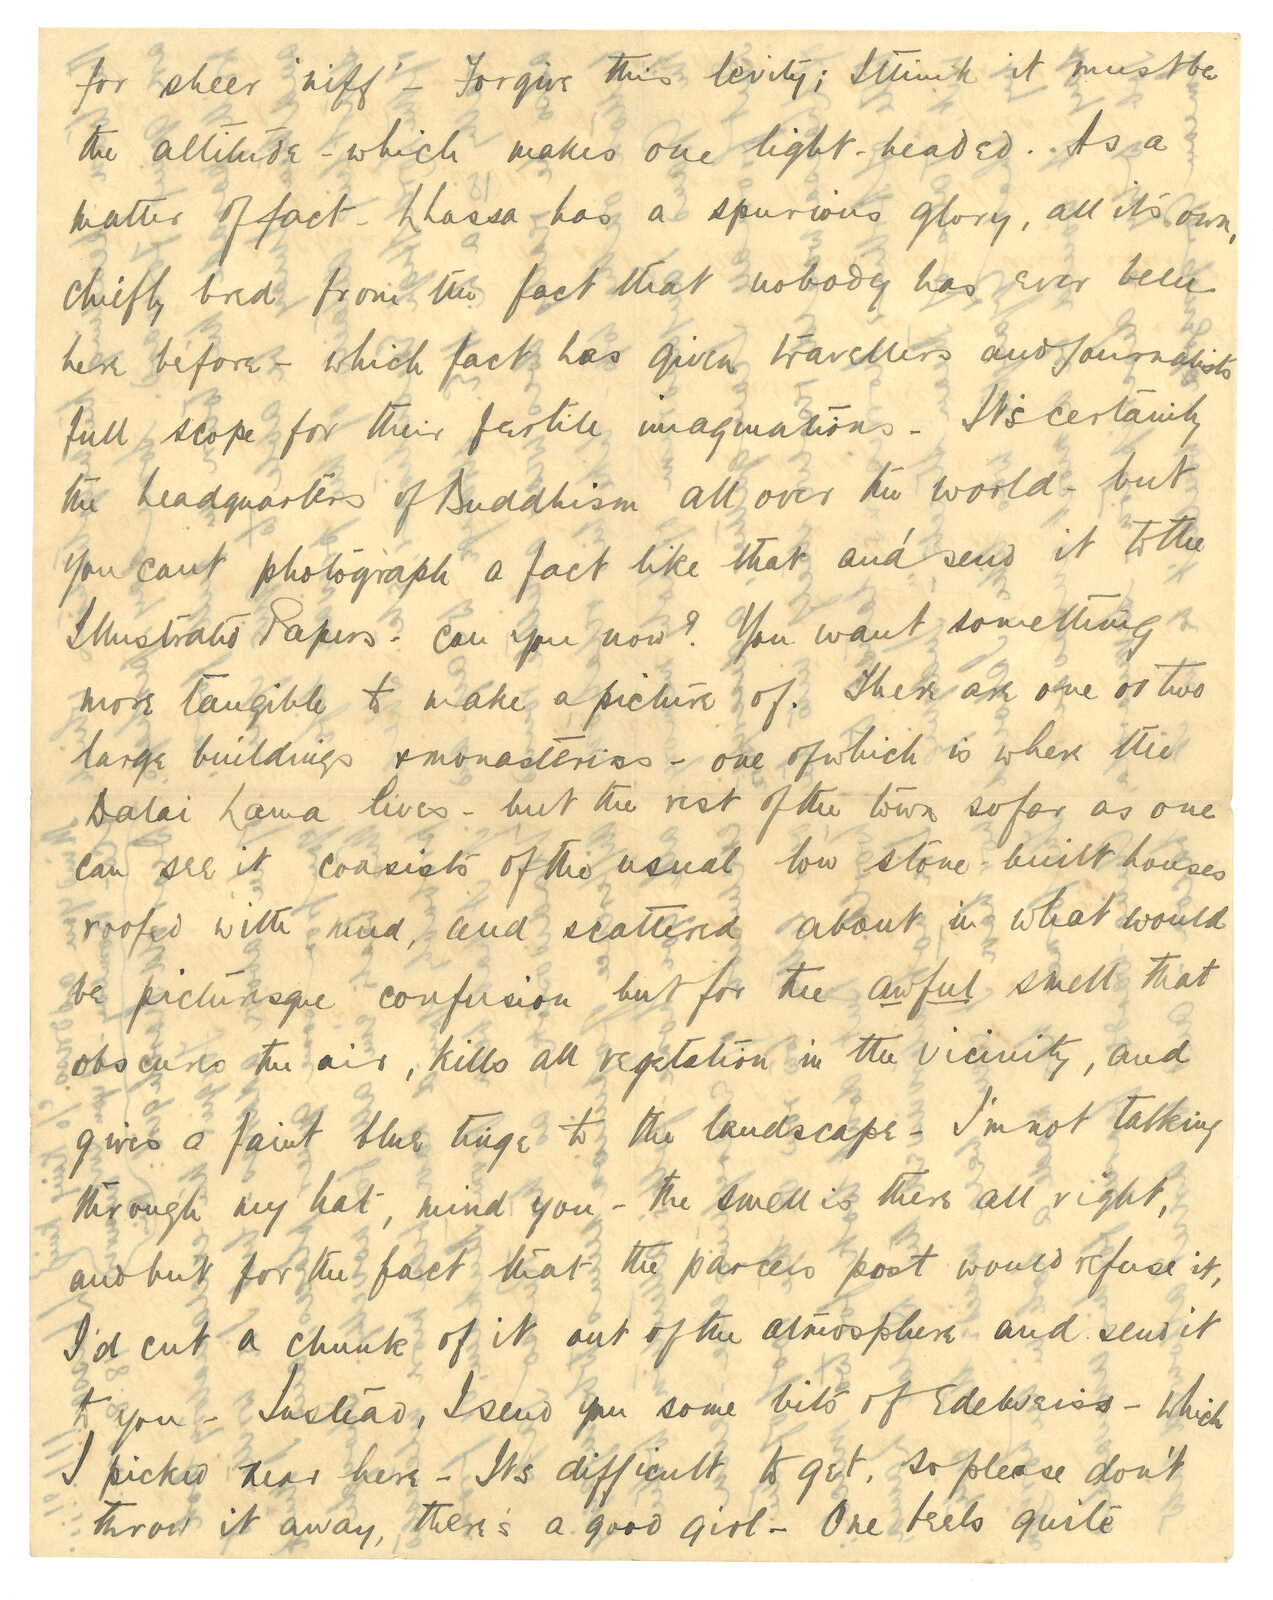 for sheer 'niff' - Forgive this levity; I think it must be
the altitude - which makes one light-headed. As a
matter of fact - Lhassa has a spurious glory, all its own,
chiefly bred from the fact that nobody has ever been
here before - which fact has given travellers and journalists
full scope for their fertile imaginations - It's certainly
the headquarters of Buddhism all over the world - but
you can't photograph a fact like that and send it to the
Illustrated Papers - can you now? You want something
more tangible to make a picture of. There are one or two
large buildings & monasteries - one of which is where the
Dalai Lama lives - but the rest of the town so far as one
can see it consists of the usual low stone-built houses
roofed with mud, and scattered about in what would
be picturesque confusion but for the awful smell that
obscures the air, kills all vegetation in the vicinity, and
gives a faint blue tinge to the landscape - I'm not talking
through my hat, mind you - the smell is there all right,
and but for the fact that the parcels post would refuse it,
I'd cut a chunk of it out of the atmosphere and send it
to you - Instead, I send you some bits of Edelweiss - which
I picked near here - It's difficult to get, so please don't
throw it away, there's a good girl - One feels quite